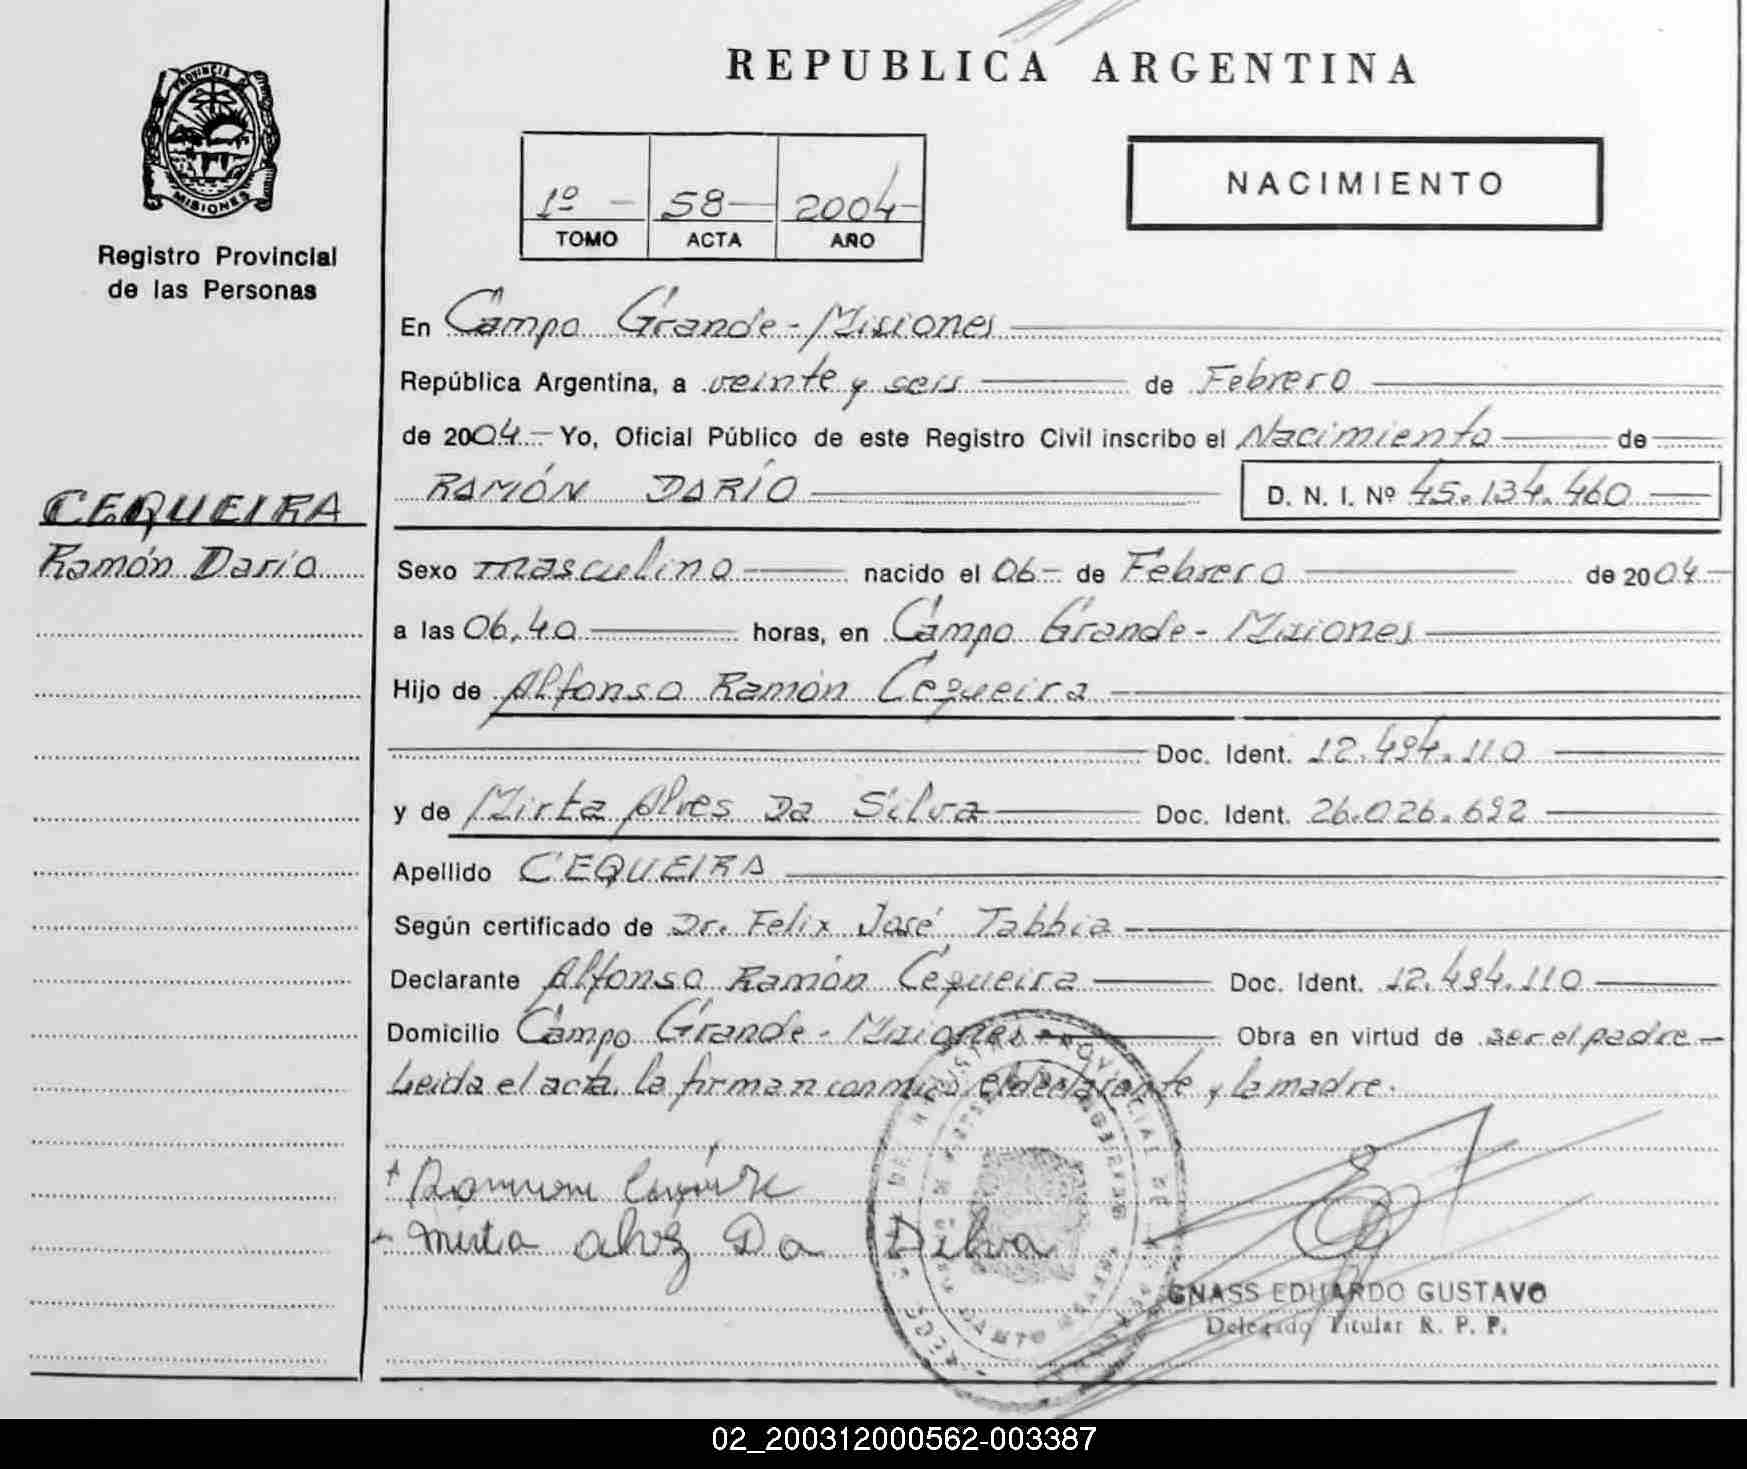 REPUBLICA ARGENTINA
PROVINCIA DE
MISIONES
Registro Provincial
de las Personas
1º - 58 - 2004 -
TOMO ACTA AÑO
NACIMIENTO
En Campo Grande - Misiones
República Argentina, a veinte y seis de Febrero
de 2004 - Yo, Oficial Público de este Registro Civil inscribo el Nacimiento de
RAMÓN DARÍO D. N. I. Nº 45.134.460
CEQUEIRA
Ramón Darío
Sexo masculino nacido el 06 - de Febrero de 2004 -
a las 06,40 horas, en Campo Grande - Misiones
Hijo de Alfonso Ramón Cequeira
Doc. Ident. 12.494.110
y de Mirta Alves Da Silva Doc. Ident. 26.026.692
Apellido CEQUEIRA
Según certificado de Dr. Felix José Tabbia
Declarante Alfonso Ramón Cequeira Doc. Ident. 12.494.110
Domicilio Campo Grande - Misiones Obra en virtud de ser el padre -
Leida el acta, la firman conmigo, el declarante y la madre.
Mirta alvez Da Silva
GNASS EDUARDO GUSTAVO
Delegado Titular R. P. P.
02_200312000562-003387